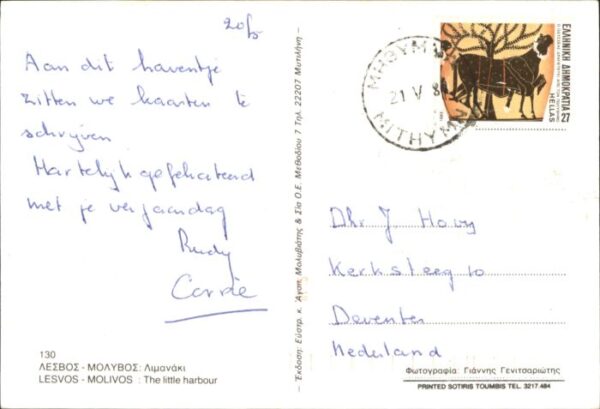 20/5
Aan dit haventje
zitten we kaarten te
schrijven.
Hartelijk gefeliciteerd
met je verjaardag
Rudy
Corrie
130
ΛΕΣΒΟΣ - ΜΟΛΥΒΟΣ: Λιμανάκι
LESVOS - MOLIVOS : The little harbour
– Έκδοση: Ευστρ. κ. Άγαπ. Μολυβιάτης & Σία Ο.Ε. Μεθοδίου 7 Τηλ. 22207 Μυτιλήνη –
ΜΗΘΥΜΝ
21 V 8
MITHYMN
ΕΛΛΗΝΙΚΗ ΔΗΜΟΚΡΑΤΙΑ 27
HELLAS
Dhr J.
Kerksteeg 10
Deventer
Nederland
Φωτογραφία: Γιάννης Γενιτσαριώτης
PRINTED SOTIRIS TOUMBIS TEL. 3217.484